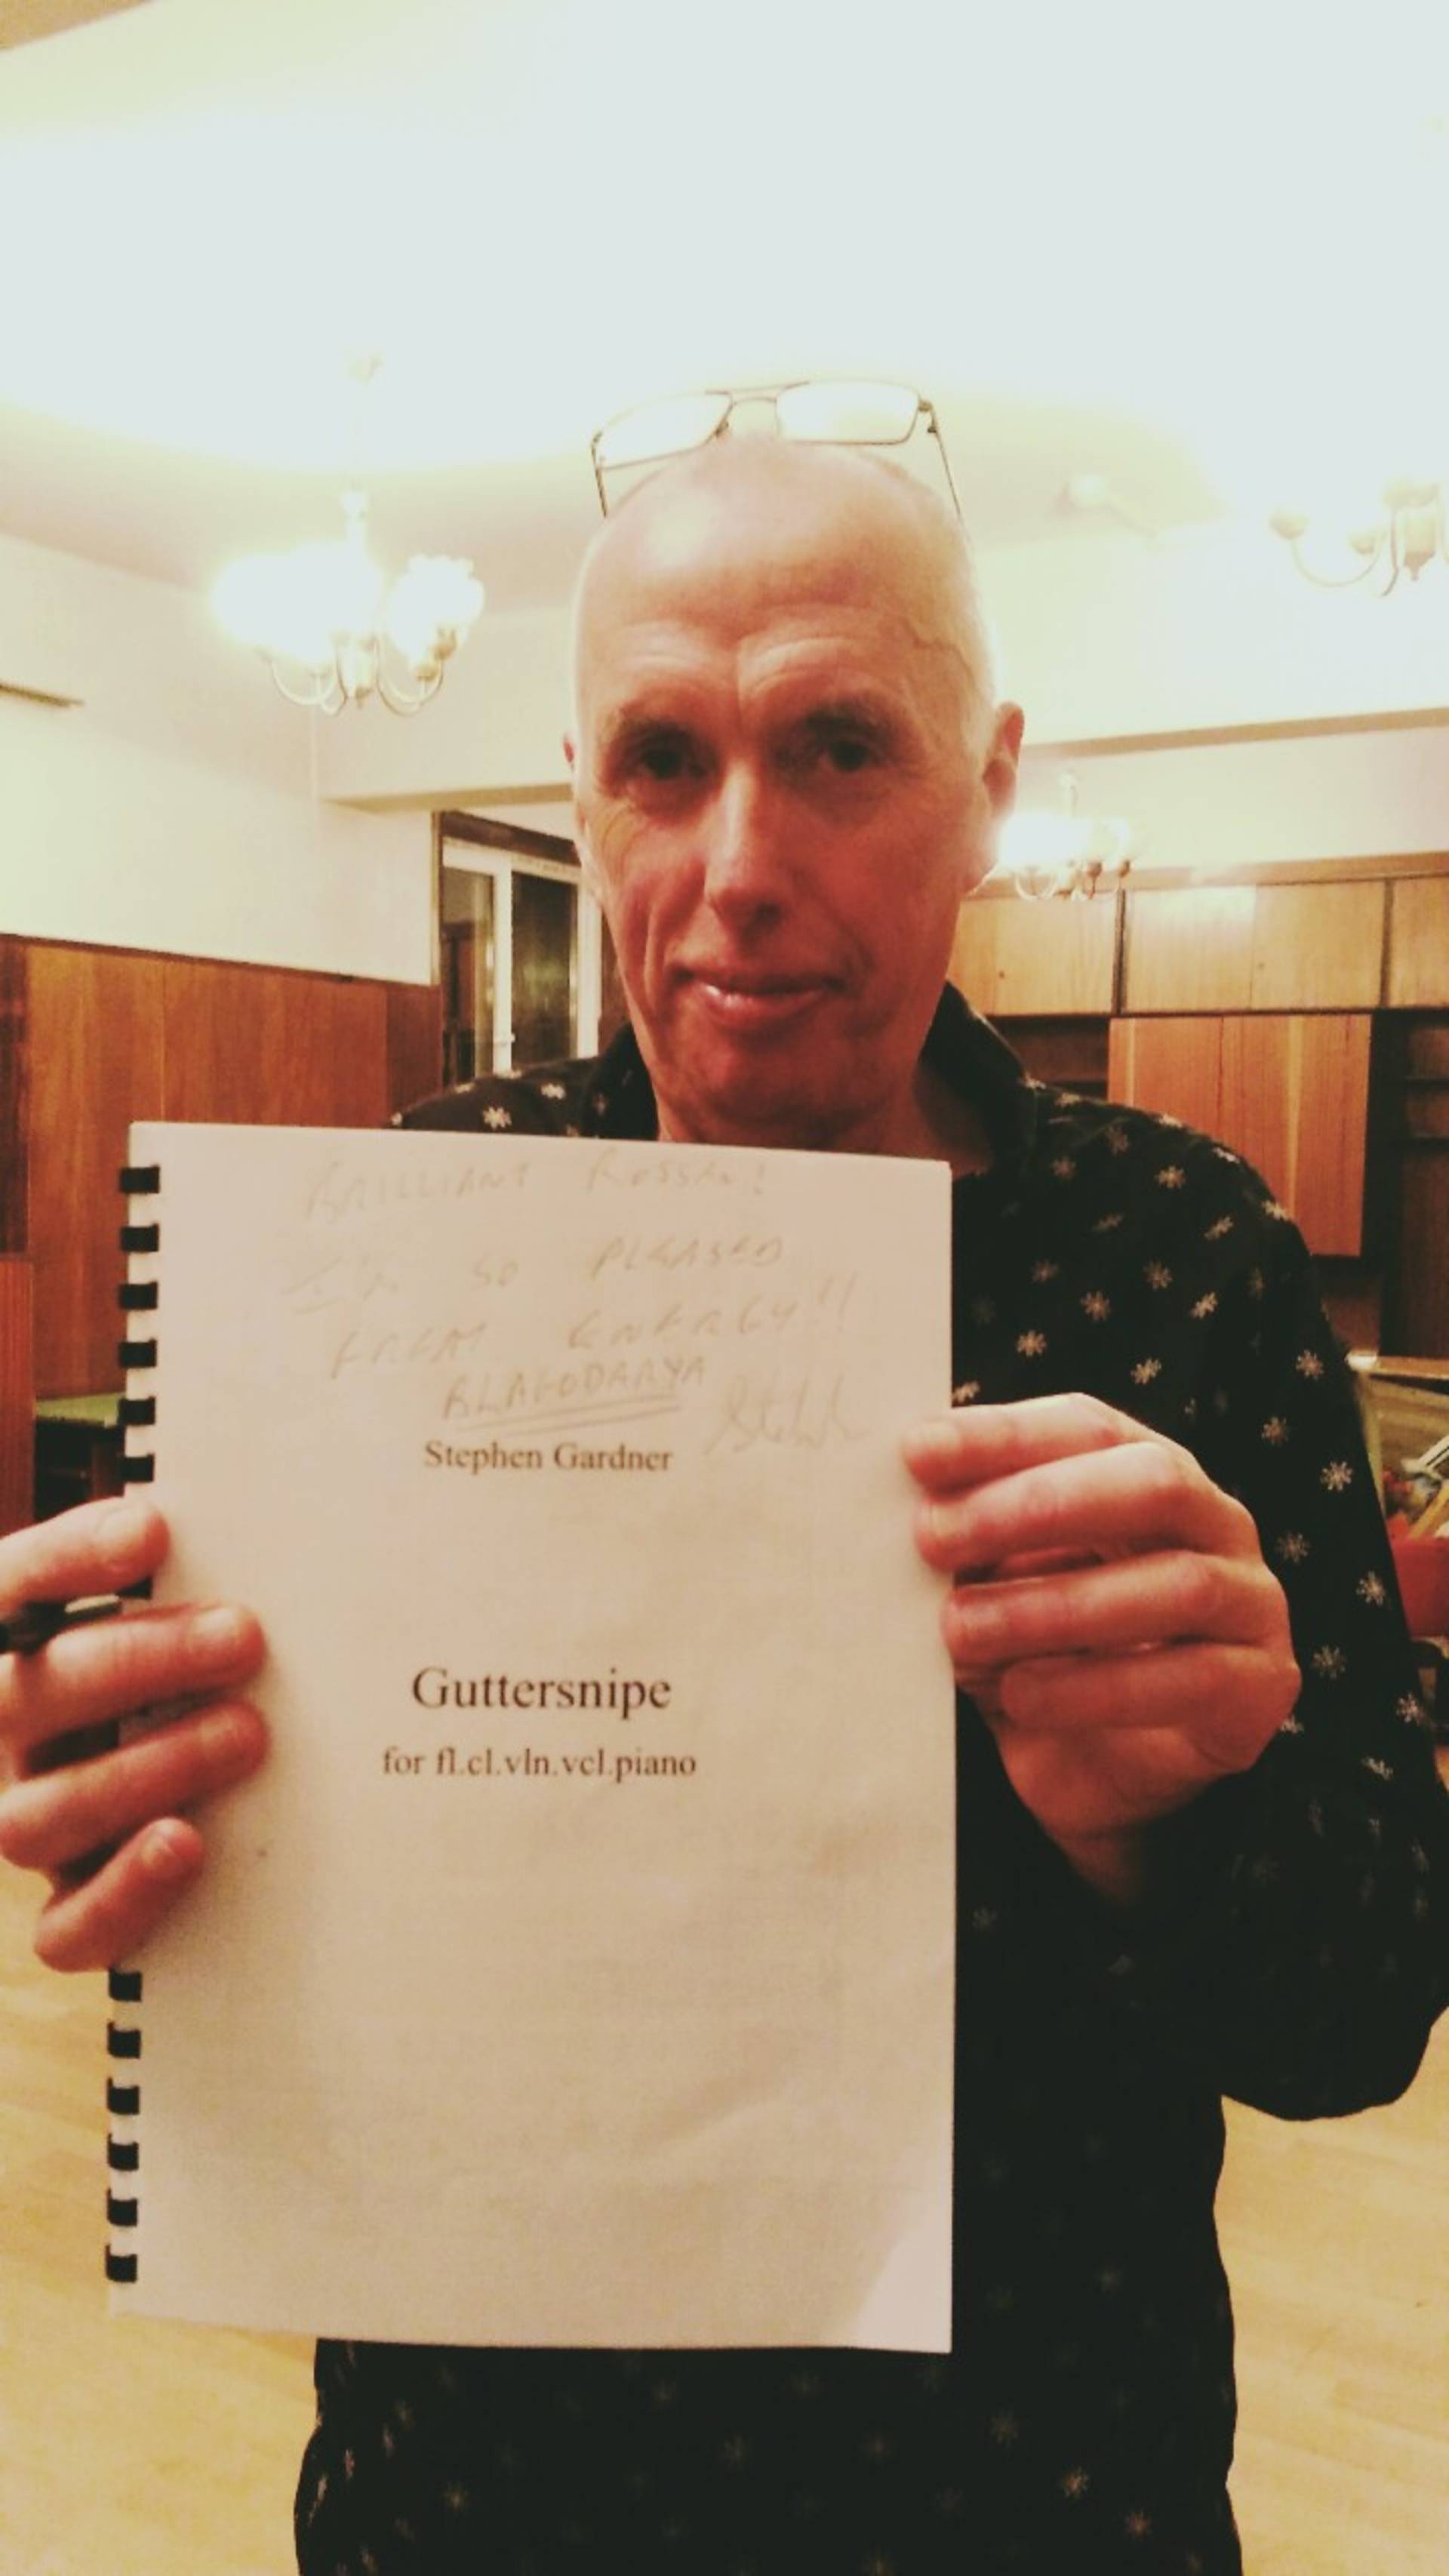 BRILLIANT ROSSEN!
I'M SO PLEASED
GREAT ENERGY!!
BLAGODARYA
Stephen Gardner
Guttersnipe
for fl.cl.vln.vcl.piano